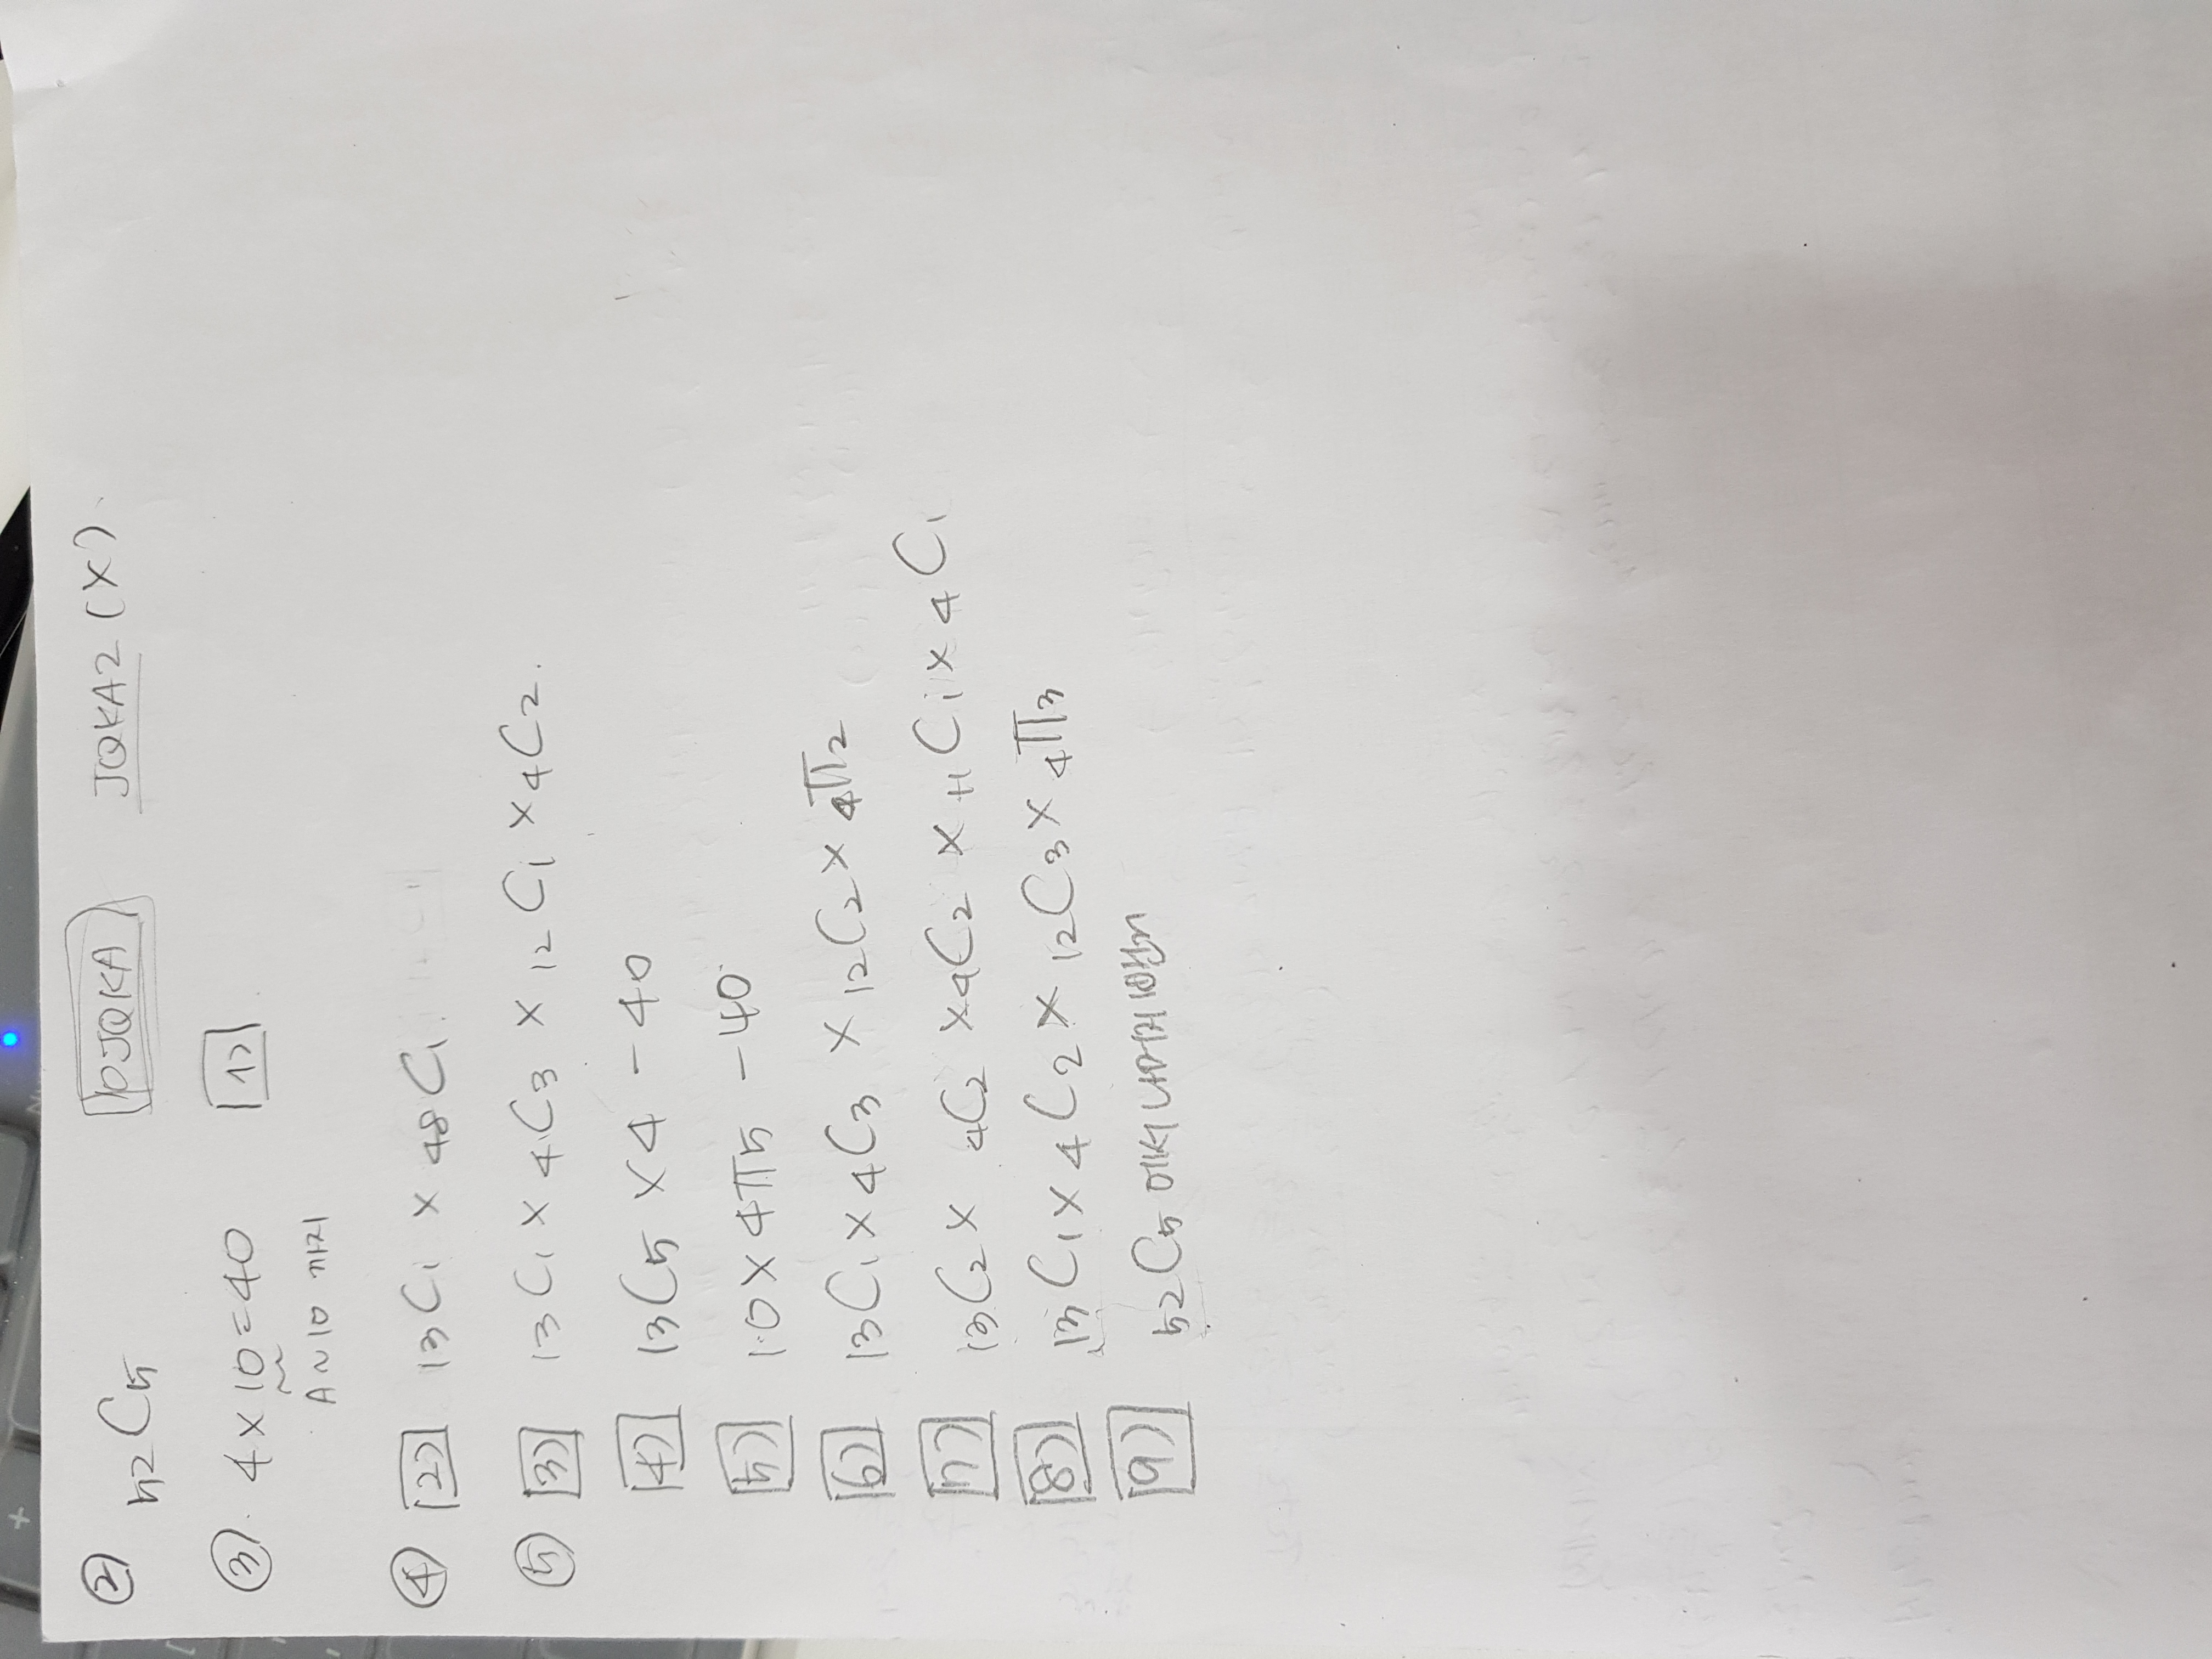 ② 52C5 10JQKA JQKA2 (X)
③ 4 × 10 = 40 1)
A ~ 10 까지
④ 2) 13C1 × 48C1.
⑤ 3) 13C1 × 4C3 × 12C1 × 4C2.
4) 13C5 × 4 - 40
5) 10 × 4Π5 - 40
6) 13C1 × 4C3 × 12C2 × 4Π2
7) 13C2 × 4C2 × 4C2 × 11C1 × 4C1
8) 13C1 × 4C2 × 12C3 × 4Π3
9) 52C5 에서 나머지